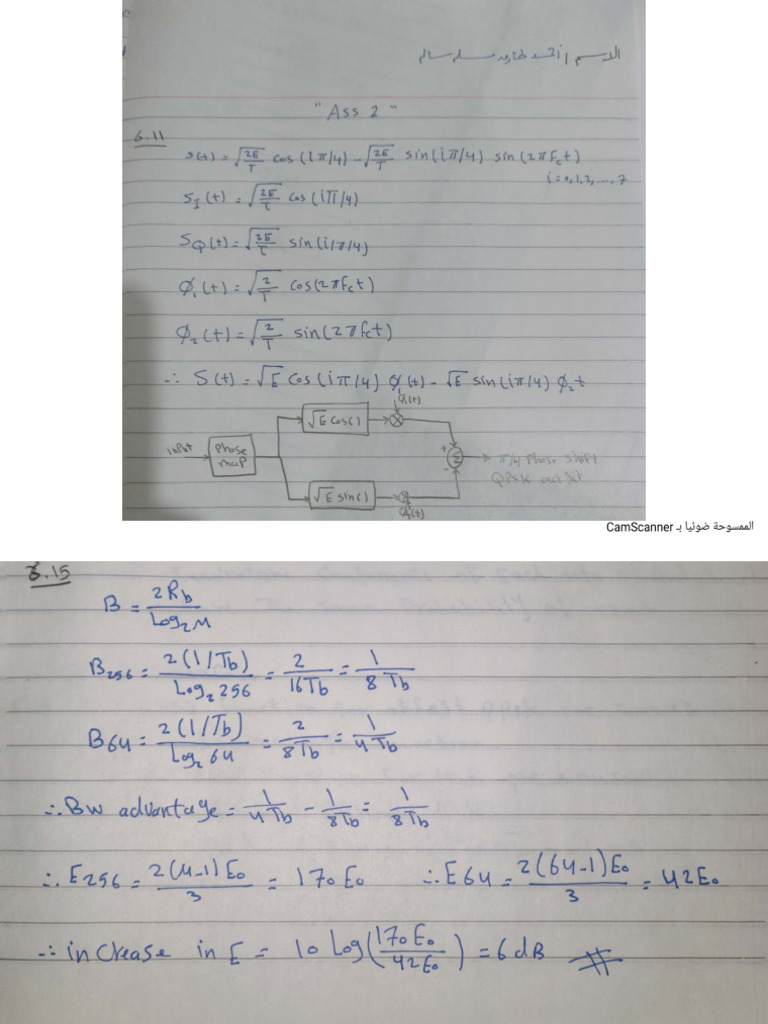 الاسم / أحمد طارق مسلم سالم
"Ass 2"
6.11
s(t) = √(2E/T) cos(iπ/4) - √(2E/T) sin(iπ/4) sin(2πfct)
i = 0, 1, 2, ..., 7
SI(t) = √(2E/T) cos(iπ/4)
SQ(t) = √(2E/T) sin(iπ/4)
Ø1(t) = √(2/T) cos(2πfct)
Ø2(t) = √(2/T) sin(2πfct)
∴ S(t) = √E cos(iπ/4) Ø1(t) - √E sin(iπ/4) Ø2t
Ø1(t)
√E cos()
input
Phase map
+
Σ
-
π/4 Phase shift
QPSK output
√E sin()
Ø2(t)
الممسوحة ضوئيا بـ CamScanner
6.15
B = 2Rb / Log2M
B256 = 2(1/Tb) / Log2 256 = 2 / 16Tb = 1 / 8Tb
B64 = 2(1/Tb) / Log2 64 = 2 / 8Tb = 1 / 4Tb
∴ BW advantage = 1/4Tb - 1/8Tb = 1/8Tb
∴ E256 = 2(M-1)E0 / 3 = 170E0 ∴ E64 = 2(64-1)E0 / 3 = 42E0
∴ increase in E = 10 log(170E0 / 42E0) = 6 dB #